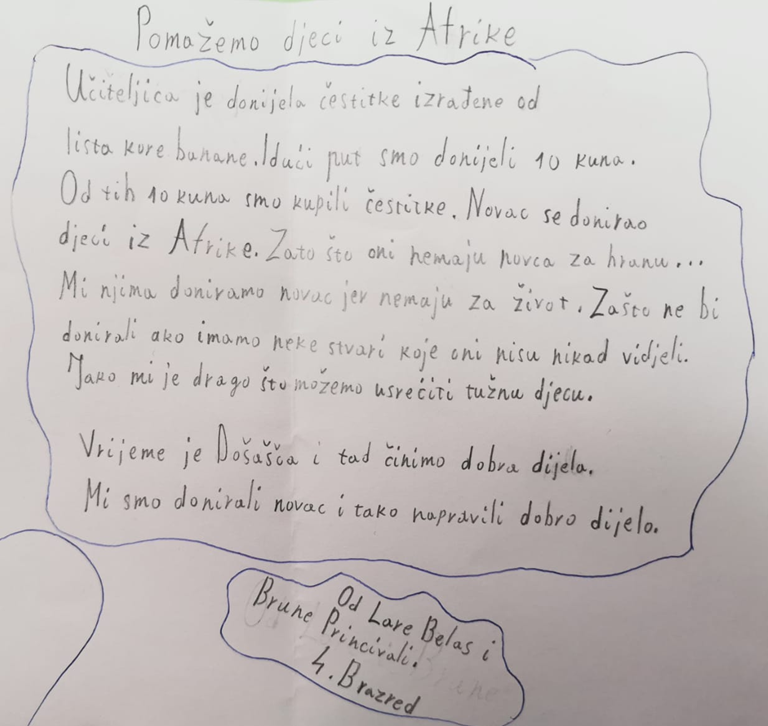 Pomažemo djeci iz Afrike
Učiteljica je donijela čestitke izrađene od
lista kore banane. Idući put smo donijeli 10 kuna.
Od tih 10 kuna smo kupili čestitke. Novac se donirao
djeci iz Afrike. Zato što oni nemaju novca za hranu...
Mi njima doniramo novac jer nemaju za život. Zašto ne bi
donirali ako imamo neke stvari koje oni nisu nikad vidjeli.
Jako mi je drago što možemo usrećiti tužnu djecu.
Vrijeme je Došašća i tad činimo dobra dijela.
Mi smo donirali novac i tako napravili dobro dijelo.
Od Lare Belas i
Brune Princivali.
4. Brazred